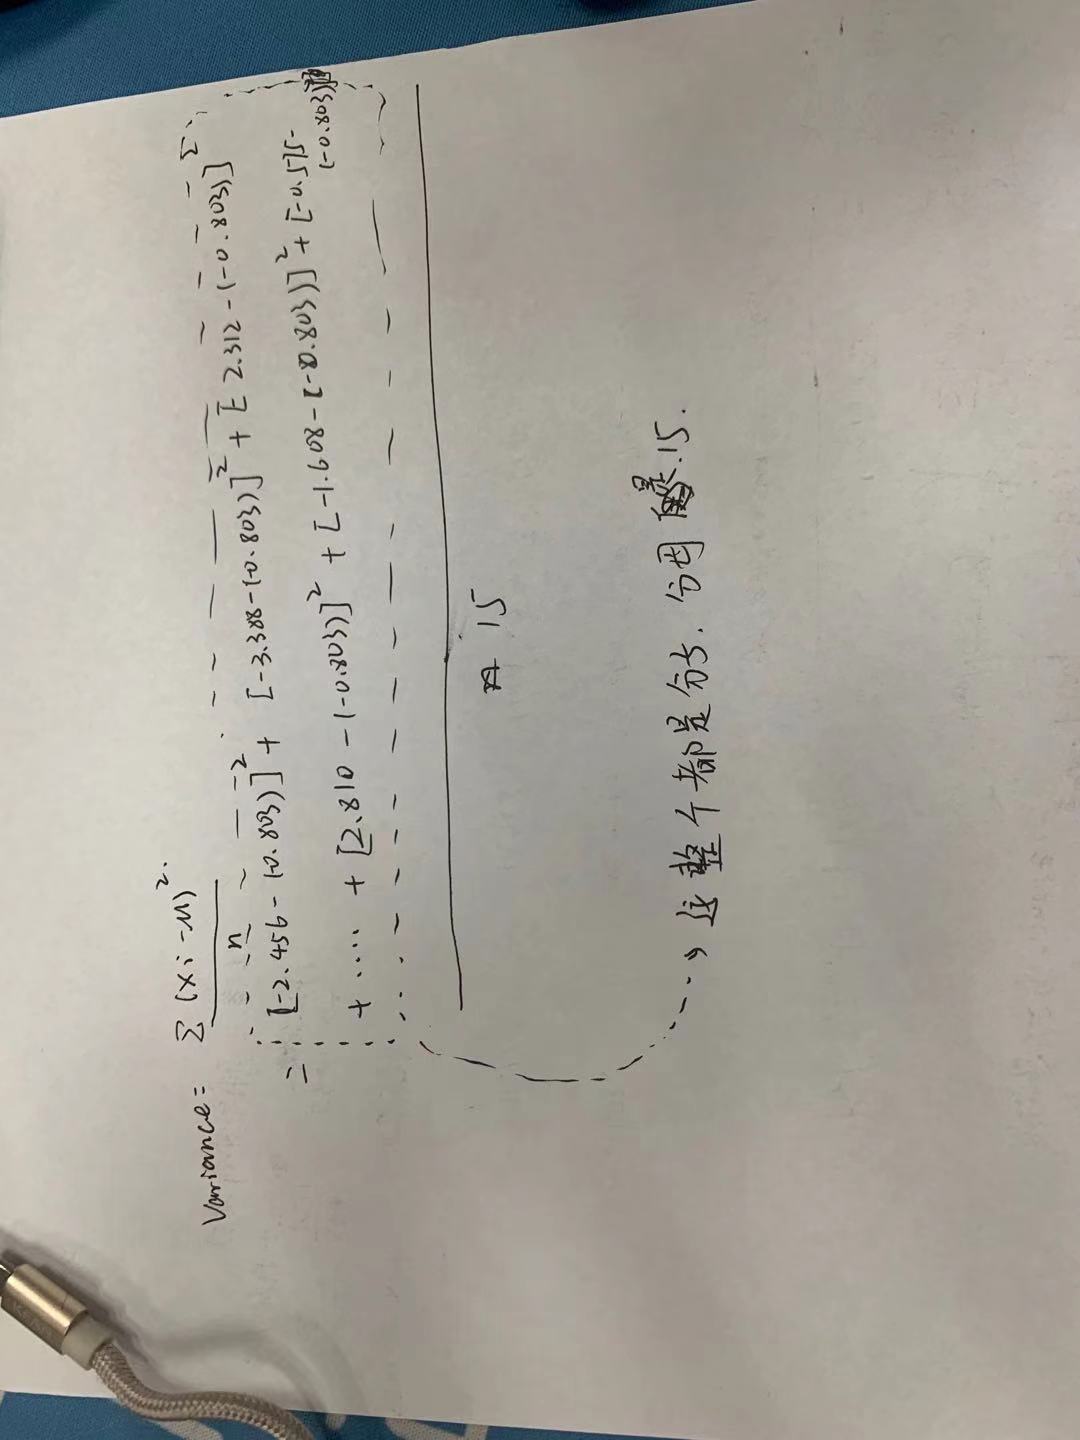 Variance = Σ(xi-μ)²
n
= [-2.456-(-0.803)]² + [-3.388-(-0.803)]² + [2.312-(-0.803)]²
+ .... + [2.810-(-0.803)]² + [-1.608-(-0.803)]² + [-0.575-
(-0.803)
15
这整个都是分子. 分母是15.